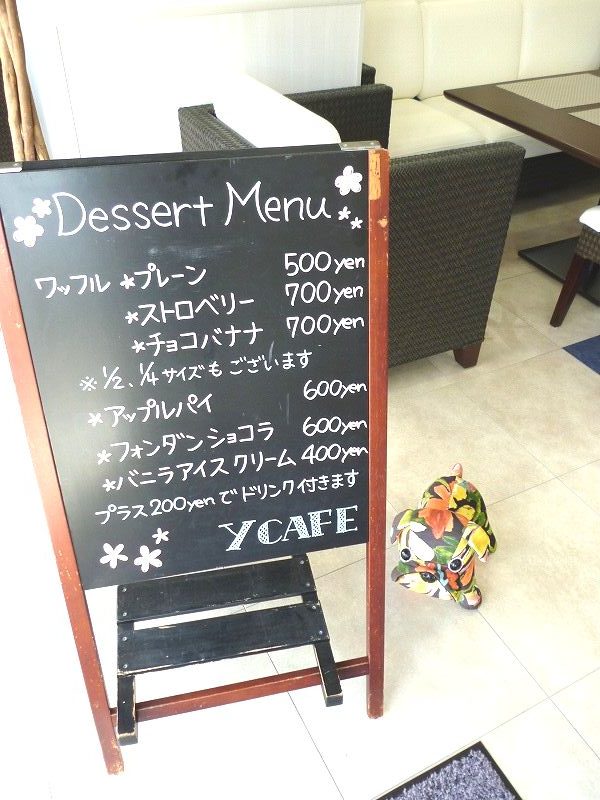 Dessert Menu
ワッフル *プレーン 500yen
*ストロベリー 700yen
*チョコバナナ 700yen
※ 1/2、1/4 サイズも ございます
*アップルパイ 600yen
*フォンダンショコラ 600yen
*バニラアイスクリーム 400yen
プラス200yenでドリンク付きます
YCAFE